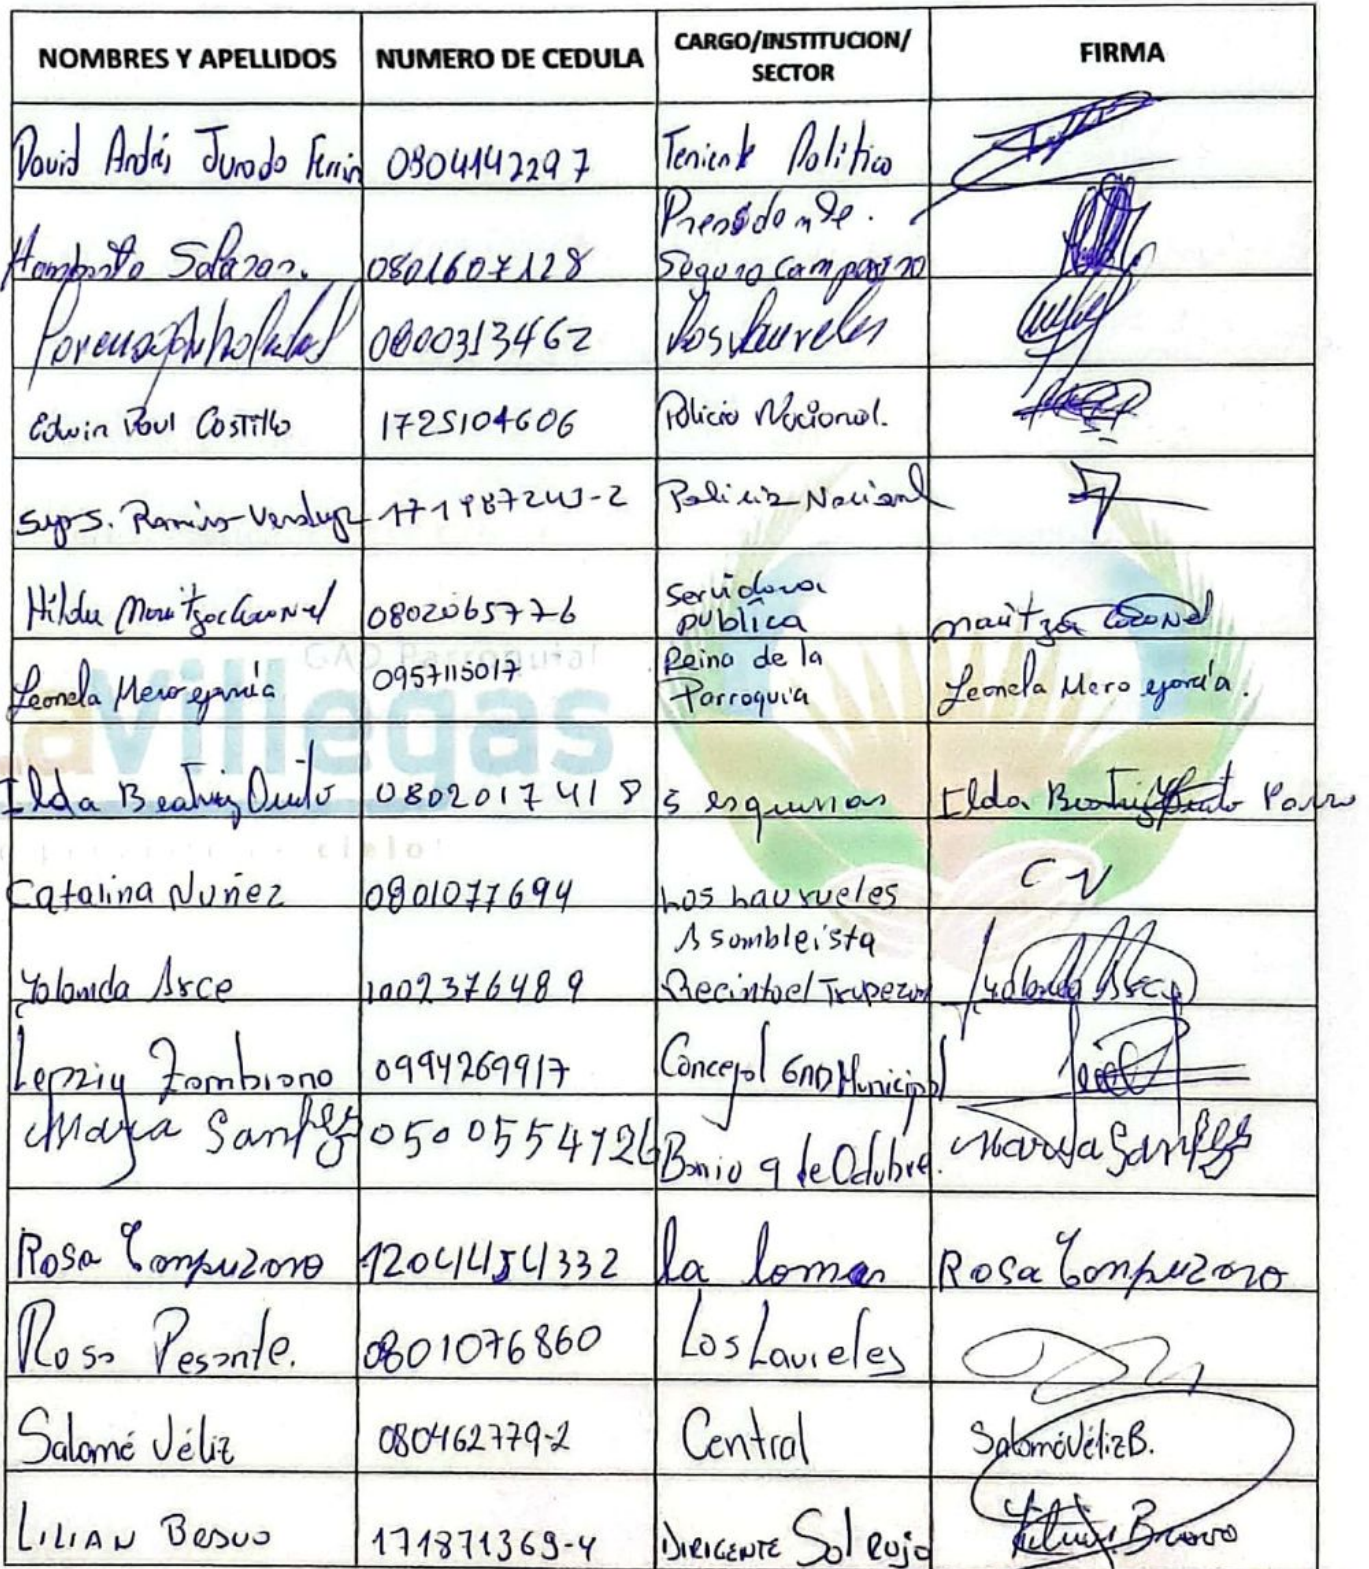 NOMBRES Y APELLIDOS NUMERO DE CEDULA CARGO/INSTITUCION/ SECTOR FIRMA
David Andrés Jurado Ferrin 0804142297 Teniente Politico
Humberto Salazar. 0801607128 Presidente. Seguro Campesino
0800313462 Los Laureles
Edwin Paul Costillo 1725104606 Policia Nacional.
Sgos. Ramiro Verdug Policia Nacional
Hilda Maritza Coronel 0802065776 Servidora pública maritza Coronel
GAD Parroquial
Leonela Mero garcía 0957115017 Reina de la Parroquia Leonela Mero garcía.
aVillegas
Ilda Beatriz Quinto 0802017418 5 esquinas Ilda Beatriz Quinto
cielo
Catalina Nuñez 0801077694 Los Laurueles C N
Yolanda Arce 1002376489 Asambleista Recinto el Trapezon Yolanda Arce
Lepziy Zambrano 0994269917 Concejal GAD Municipal
Maria 0500554726 Barrio 9 de Octubre. Maria
Rosa Campuzano 1204454332 la loma Rosa Campuzano
Rosa Pesante. 0801076860 Los Laureles
Salomé Véliz 080462779-2 Central Salomé Véliz B.
LILIAN BRAVO 171871369-4 DIRIGENTE Sol Rojo Lilian Bravo